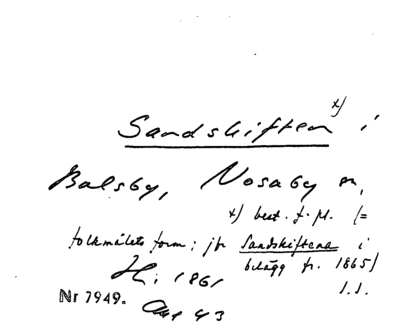 Sandskiften x) i
Balsby, Nosaby sn,
x) best. f. pl. (=
folkmålets form; jfr Sandskiftena i
belägg fr. 1865)
Hi 1861
J.S.
Nr 7949. Aug 43